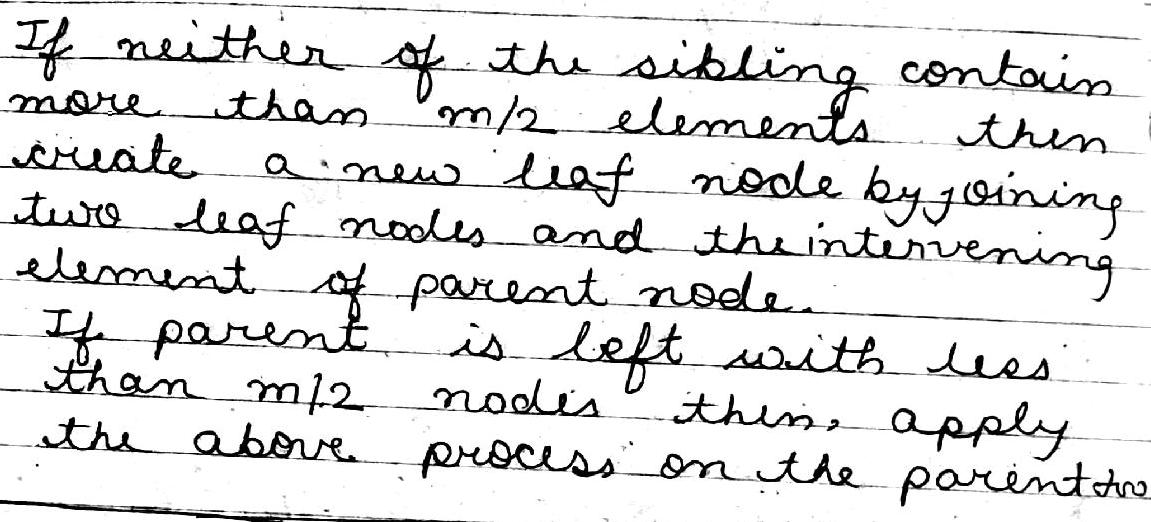 If neither of the sibling contain
more than m/2 elements then
create a new leaf node by joining
two leaf nodes and the intervening
element of parent node.
If parent is left with less
than m/2 nodes then, apply
the above process on the parent too